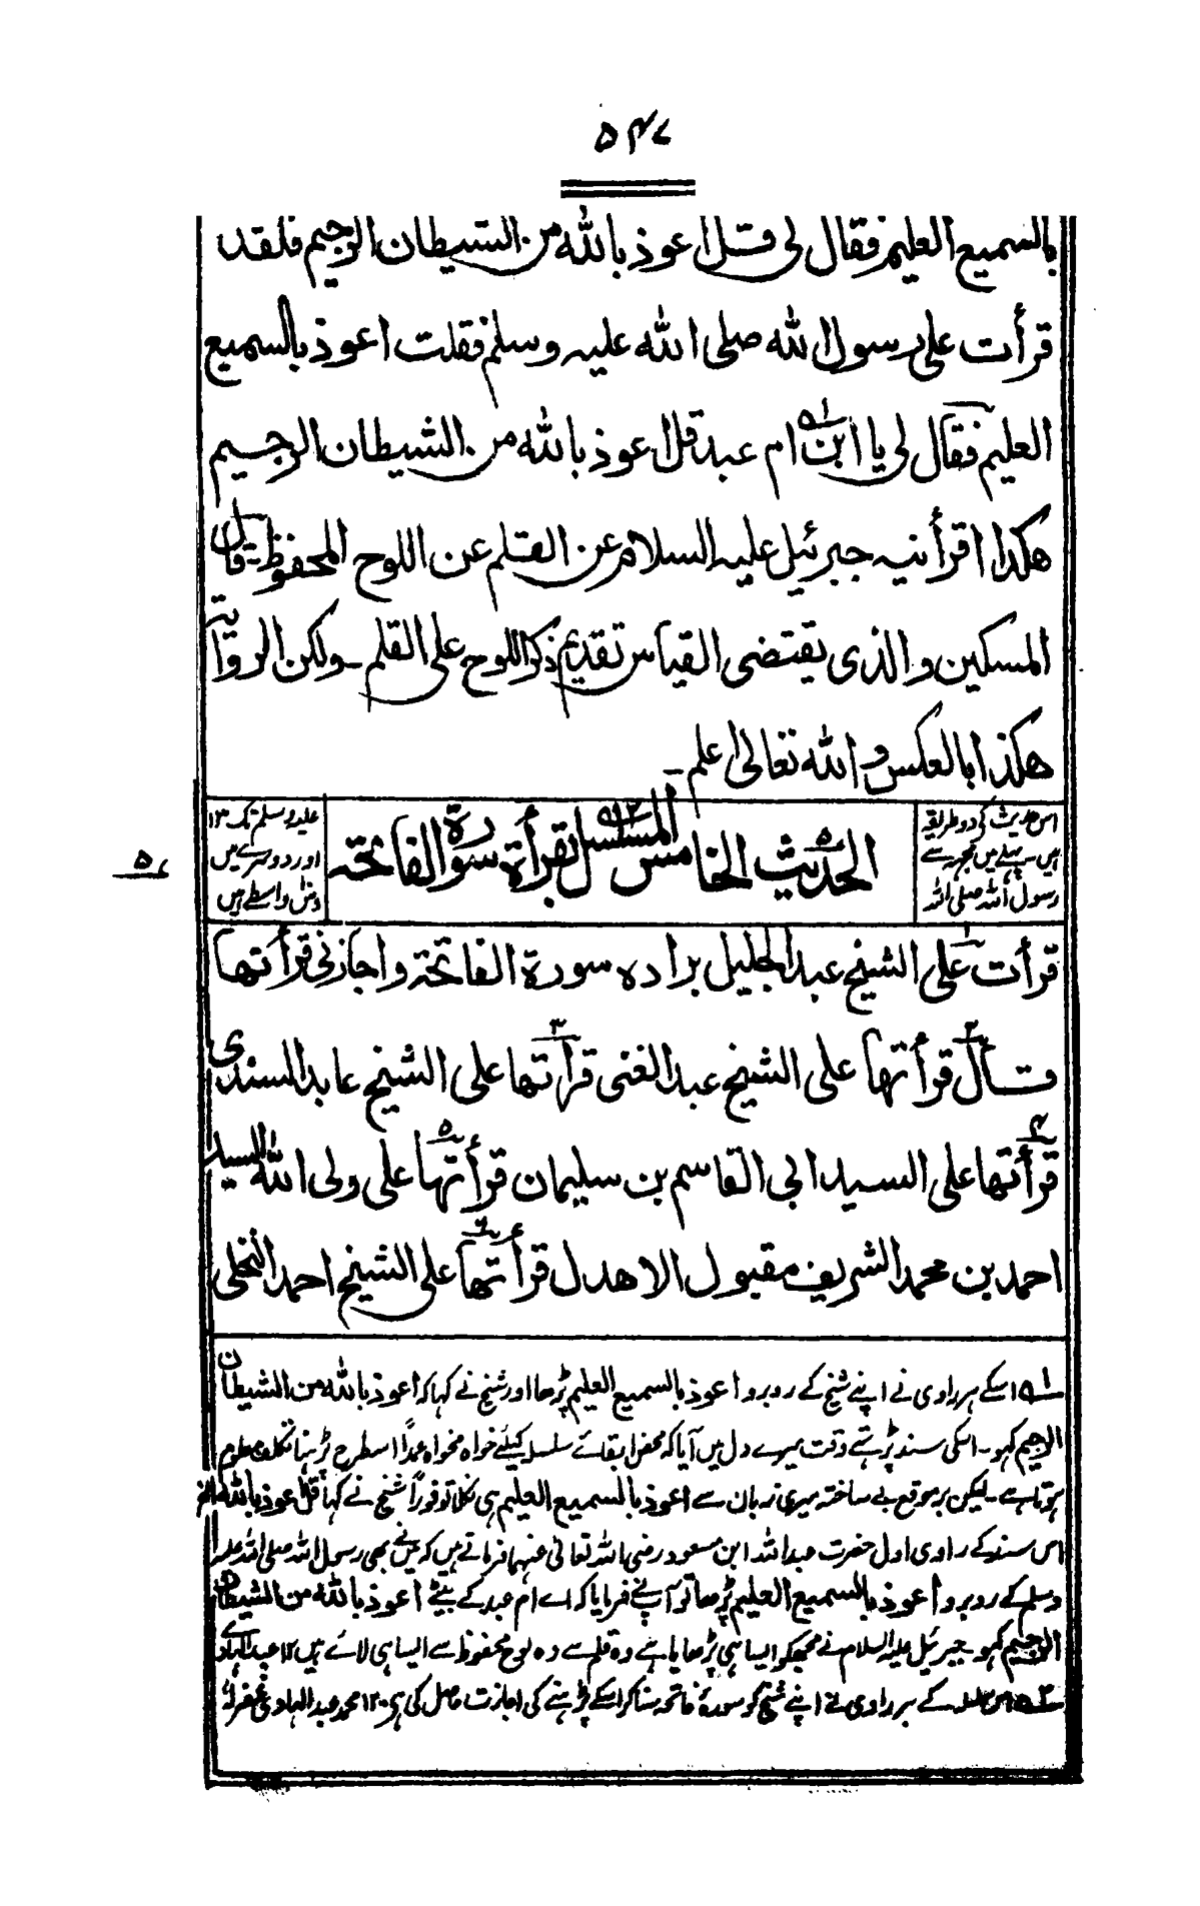 ۵۴۷
بالسميع العليم فقال لی قل اعوذ بالله من الشيطان الرجيم فلقد
قرأت على رسول الله صلى الله عليه وسلم فقلت اعوذ بالسميع
العليم فقال لی يا ابن ام عبد قل اعوذ بالله من الشيطان الرجيم
هكذا اقرأنيه جبرئيل عليه السلام عن القلم عن اللوح المحفوظ - قال
المسكين والذی يقتضی القياس تقديم ذكر اللوح على القلم - ولكن الرواية
هكذا بالعكس والله تعالى اعلم -
اس حدیث کی دو طریقہ
ہیں پہلے میں مجھ سے
رسول اللہ صلی اللہ
الحديث الخامس المسلسل بقرأة سورة الفاتحة
علیہ وسلم تک ۱۳
اور دوسرے میں
دس واسطے ہیں
۵
قرأت على الشيخ عبد الجليل براده سورة الفاتحة واجازنی قرأتها
قال قرأتها على الشيخ عبد الغنی قرأتها على الشيخ عابد السندی
قرأتها على السيد ابی القاسم بن سليمان قرأتها على ولی الله السيد
احمد بن محمد الشريف مقبول الاهدل قرأتها على الشيخ احمد النخلی
۱ اسکے ہر راوی نے اپنے شیخ کے روبرو اعوذ بالسميع العليم پڑھا اور شیخ نے کہا کہ اعوذ بالله من الشيطان
الرجيم کہو۔ اسکی سند پڑھتے وقت میرے دل میں آیا کہ محض ابقائے سلسلہ کیلئے خواہ مخواہ عمداً اسطرح پڑھنا تکلف معلوم
ہوتا ہے۔ لیکن بر موقع بے ساختہ میری زبان سے اعوذ بالسميع العليم ہی نکلا تو فوراً شیخ نے کہا قل اعوذ بالله الخ
اس سند کے راوی اول حضرت عبد اللہ ابن مسعود رضی اللہ تعالیٰ عنہما فرماتے ہیں کہ میں نے بھی رسول اللہ صلی اللہ علیہ
وسلم کے روبرو اعوذ بالسميع العليم پڑھا تو آپ نے فرمایا کہ اے ام عبد کے بیٹے اعوذ بالله من الشيطان
الرجيم کہو۔ جبرئیل علیہ السلام نے مجھکو ایسا ہی پڑھایا ہے وہ قلم سے وہ لوح محفوظ سے ایسا ہی لائے ہیں ۱۲ عبد الہادی
۲ اس سلسلہ کے ہر راوی نے اپنے شیخ کو سورۂ فاتحہ سنا کر اسکے پڑھنے کی اجازت حاصل کی ہی ۱۲ محمد عبد الہادی غفرلہ